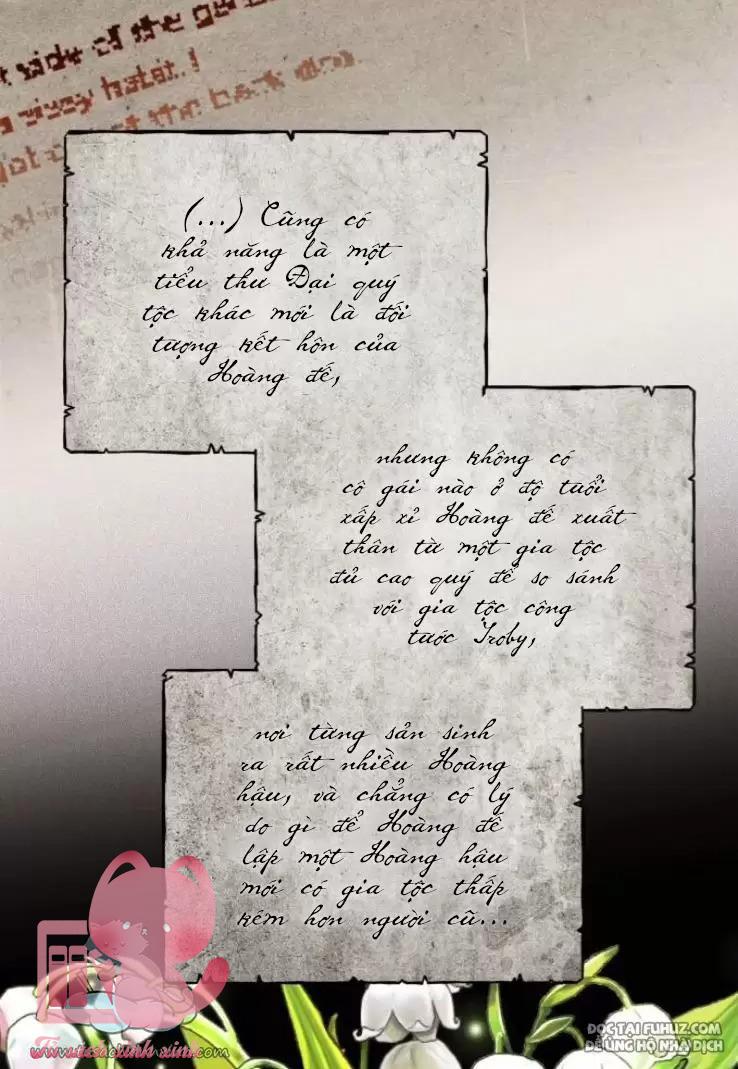 side of the
(...) Cũng có
khả năng là một
tiểu thư Đại quý
tộc khác mới là đối
tượng kết hôn của
Hoàng đế,
nhưng không có
cô gái nào ở độ tuổi
xấp xỉ Hoàng đế xuất
thân từ một gia tộc
đủ cao quý để so sánh
với gia tộc công
tước Iroby,
nơi từng sản sinh
ra rất nhiều Hoàng
hậu, và chẳng có lý
do gì để Hoàng đế
lập một Hoàng hậu
mới có gia tộc thấp
kém hơn người cũ...
ĐỌC TẠI FUHUZ.COM
ĐỂ ỦNG HỘ NHÀ DỊCH